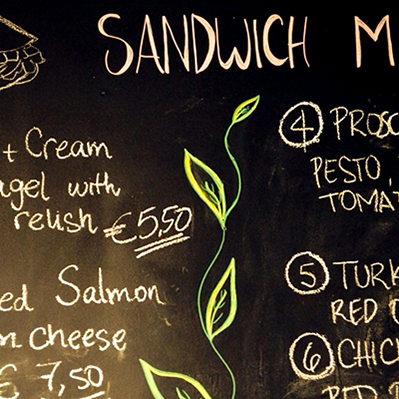 SANDWICH M
+ Cream
agel with
relish €5,50
ed Salmon
m cheese
€ 7,50
4 PROSC
PESTO,
TOMAT
5 TURK
RED O
6 CHIC